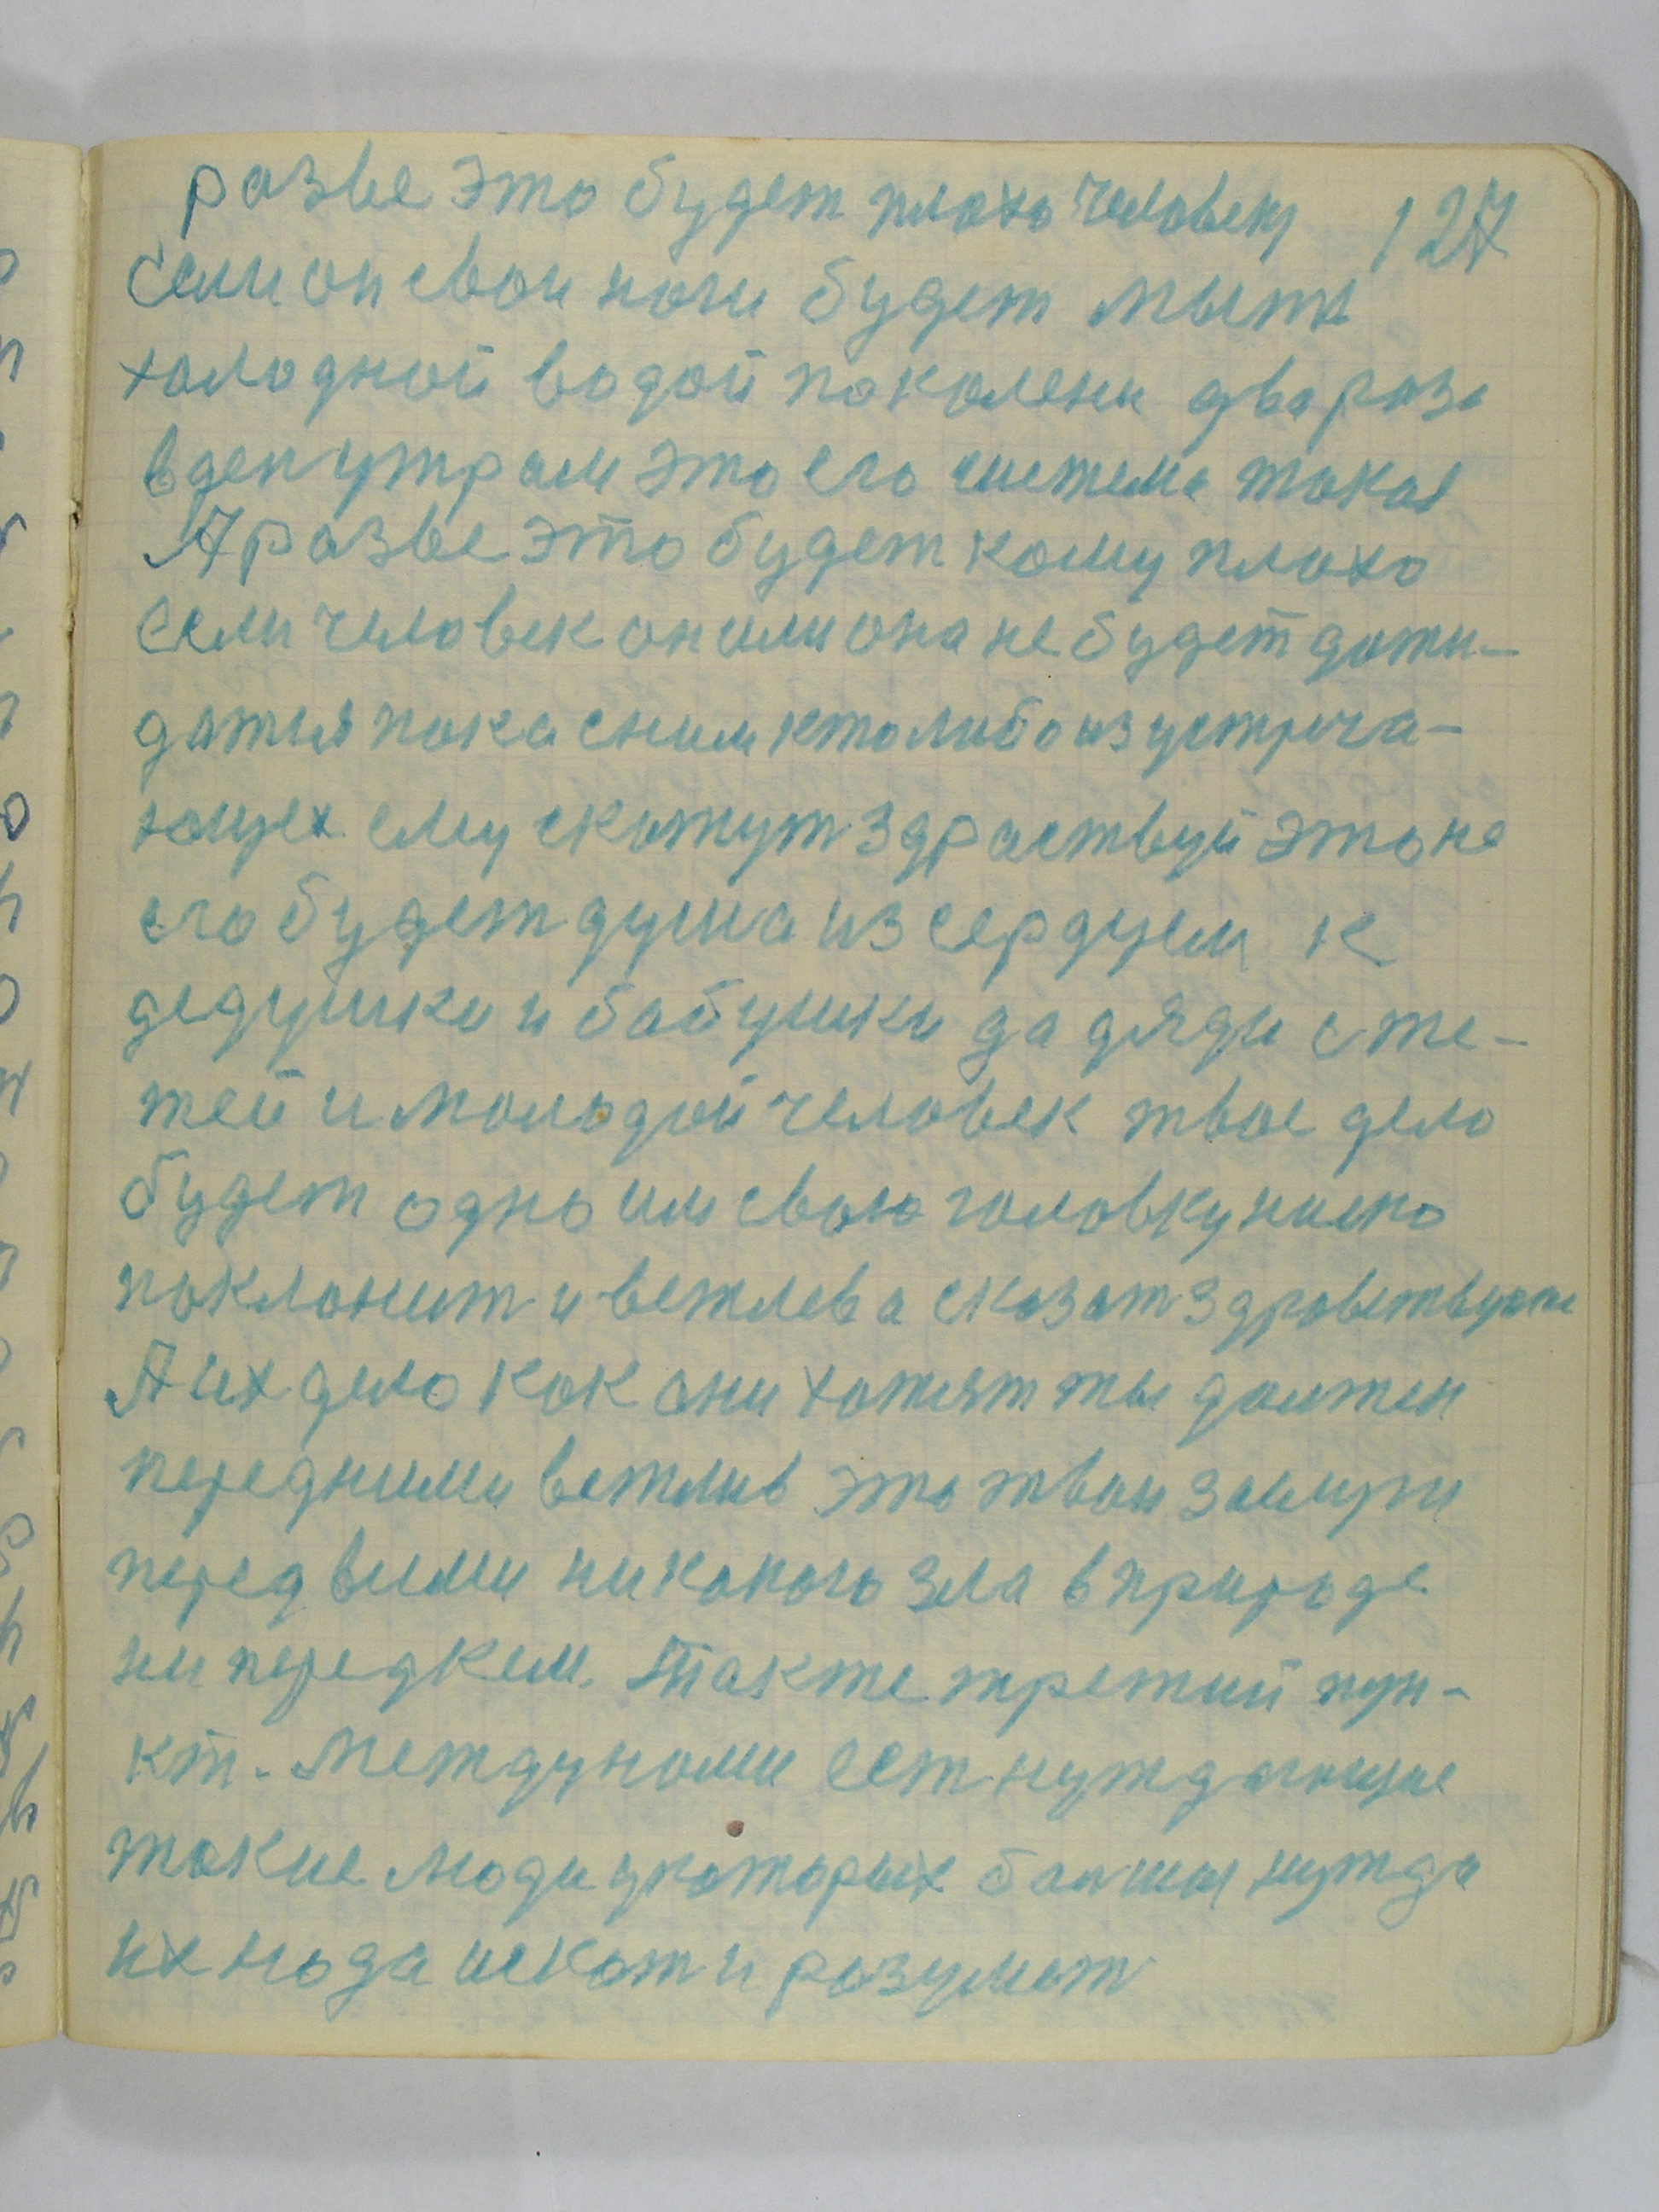 разве это будет плохо человеку 127
если он свои ноги будет мыть
холодной водой по колени два раза
вден утром это его система такая
А разве это будет кому плохо
если человек он или она не будет дожи-
даться пока сним кто либо из устреча-
ющех ему скажут здраствуй это не
его будет душа из сердцем к
дедушки и бабушки да дяди с те-
тей и молодой человек твое дело
будет одно им свою головку низко
поклонит и вежлева сказат здравствуйте
А их дело как они хотят ты должен
передними вежлив это твои заслуги
перед всими никакого зла в природе
ни передкем. Также третий пун-
кт. Междунами ест нуждающие
такие люди укоторых болшая нужда
их нада искат и разумет